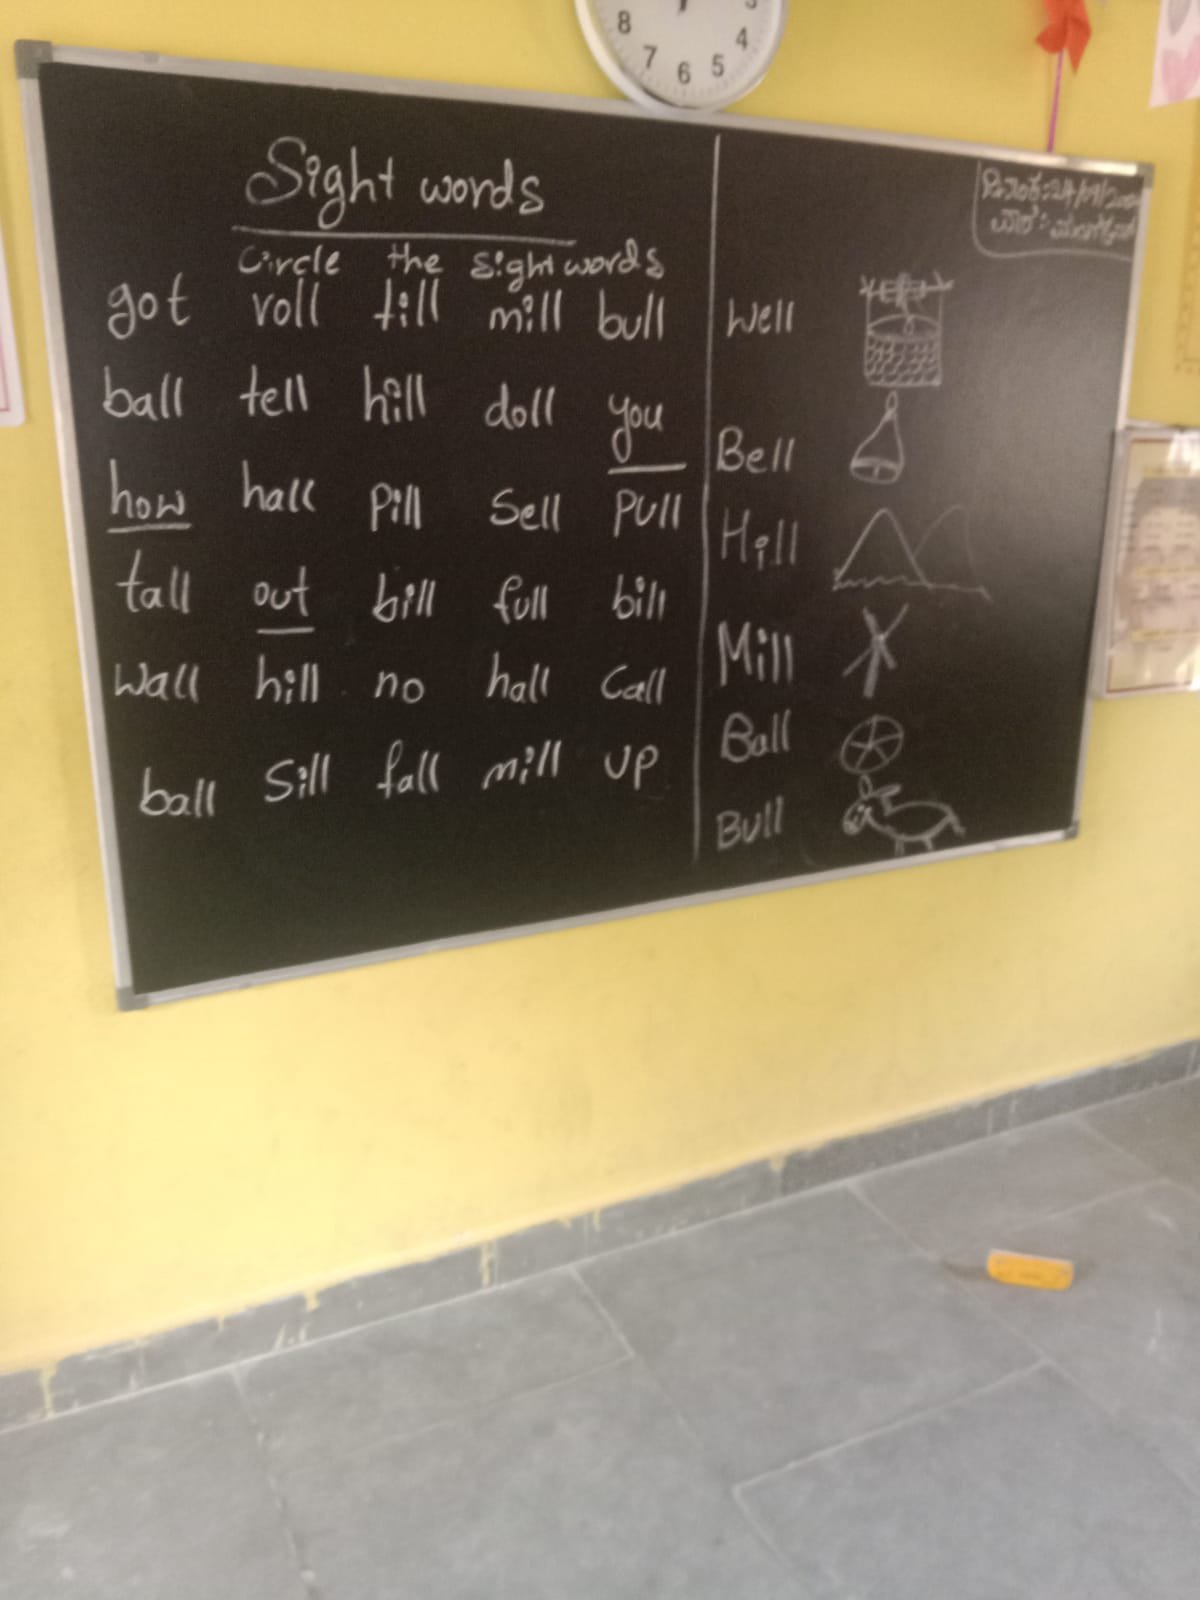 Sight words
Circle the sight words
got roll till mill bull
ball tell hill doll you
how hall Pill Sell PUll
tall out bill full bill
Wall hill no hall Call
ball Sill fall mill UP
ದಿನಾಂಕ: 24/09/
ವಾರ: ಮಂಗಳವಾರ
Well
Bell
Hill
Mill
Ball
Bull
8 7 6 5 4 3